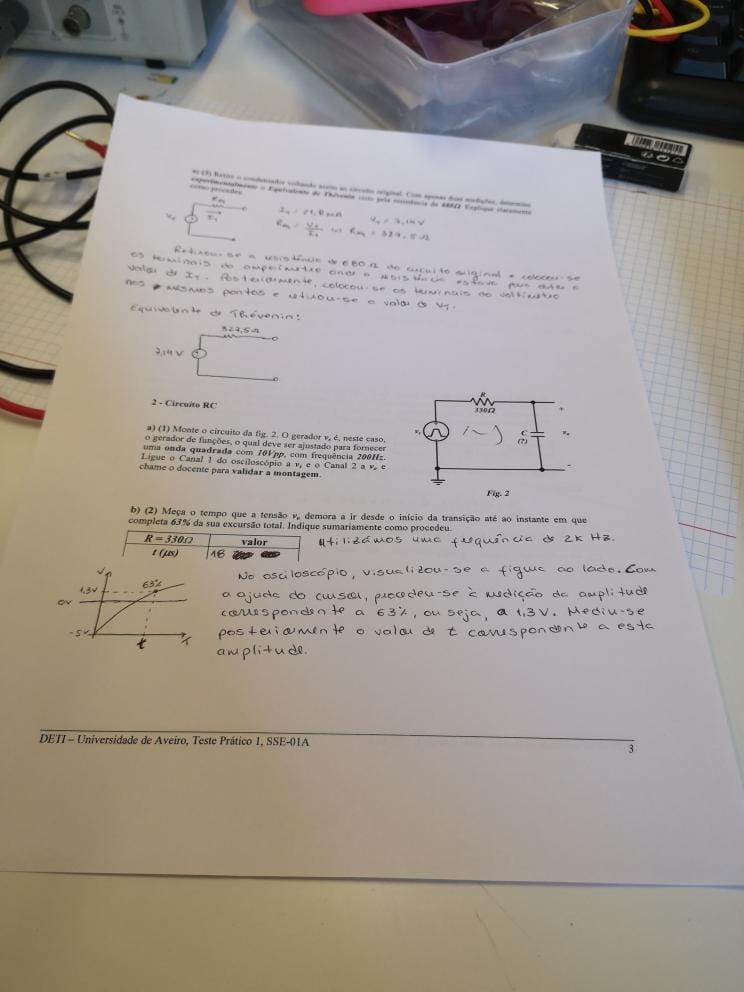 v) (3) Retire o condensador voltando assim ao circuito original. Com apenas duas medições, determine
experimentalmente o Equivalente de Thévenin visto pela resistência de 680Ω. Explique claramente
como procedeu.
Req
VT
IT
IT = 21,8 mA
VT = 7,14 V
Req = VT/IT (=) Req = 327,5 Ω
Retirou-se a resistência de 680 Ω do circuito original e colocou-se
os terminais do amperímetro onde a resistência estava para obter o
valor de IT. Posteriormente, colocou-se os terminais do voltímetro
nos mesmos pontos e retirou-se o valor de VT.
Equivalente de Thévenin:
327,5Ω
7,14 V
2 - Circuito RC
a) (1) Monte o circuito da fig. 2. O gerador vs é, neste caso,
o gerador de funções, o qual deve ser ajustado para fornecer
uma onda quadrada com 10Vpp, com frequência 200Hz.
Ligue o Canal 1 do osciloscópio a vs e o Canal 2 a vo e
chame o docente para validar a montagem.
R
330Ω
vs
C
(?)
+
vo
-
Fig. 2
b) (2) Meça o tempo que a tensão vo demora a ir desde o início da transição até ao instante em que
completa 63% da sua excursão total. Indique sumariamente como procedeu.
R = 330Ω valor
t (μs) 18
Utilizámos uma frequência de 2k Hz.
V
1,3V
63%
0V
-5V
t
No osciloscópio, visualizou-se a figura ao lado. Com
a ajuda do cursor, procedeu-se à medição da amplitude
correspondente a 63%, ou seja, a 1,3V. Mediu-se
posteriormente o valor de t correspondente a esta
amplitude.
DETI – Universidade de Aveiro, Teste Prático 1, SSE-01A
3